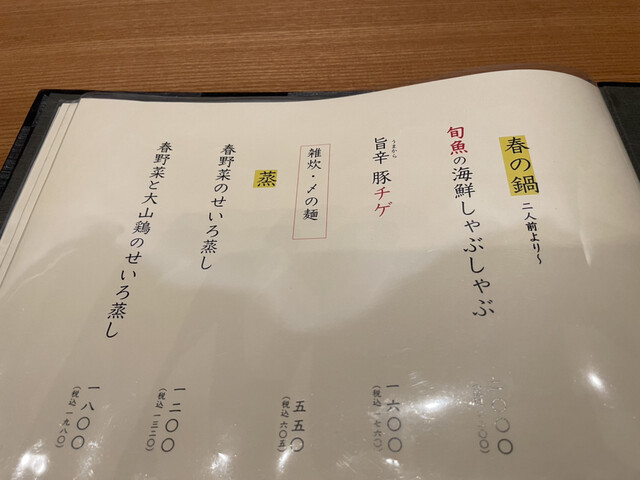 春の鍋 二人前より〜
旬魚の海鮮しゃぶしゃぶ
旨辛 豚チゲ
うまから
一六〇〇
(税込 一七六〇)
雑炊・〆の麺
五五〇
(税込 六〇五)
蒸
春野菜のせいろ蒸し
一二〇〇
(税込 一三二〇)
春野菜と大山鶏のせいろ蒸し
一八〇〇
(税込 一九八〇)